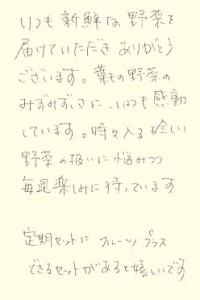 いつも新鮮な野菜を
届けていただき ありがとう
ございます。葉もの野菜の
みずみずしさに、いつも感動
しています。時々入る珍しい
野菜の扱いに悩みつつ
毎週楽しみに待っています
定期セットに フルーツ プラス
できるセットがあると嬉しいです